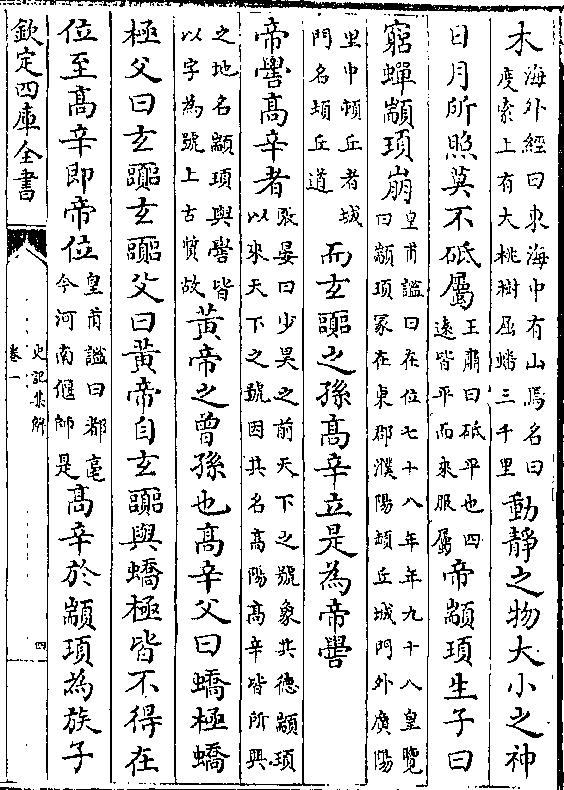 木海外經曰東海中有山焉名曰度索上有大桃樹屈蟠三千里動靜之物大小之神
日月所照莫不砥屬王肅曰砥平也四遠皆平而來服屬帝顓頊生子曰
窮蟬顓頊崩皇甫謐曰在位七十八年年九十八皇覽曰顓頊冢在東郡濮陽頓丘城門外廣陽
里中頓丘者城門名頓丘道而玄囂之孫髙辛立是為帝嚳
帝嚳髙辛者張晏曰少昊之前天下之號象其德顓頊以來天下之號因其名高陽高辛皆所興
之地名顓頊與嚳皆以字為號上古質故黃帝之曾孫也髙辛父曰蟜極蟜
極父曰玄囂玄囂父曰黃帝自玄囂與蟜極皆不得在
位至髙辛即帝位皇甫謐曰都亳今河南偃師是髙辛於顓頊為族子
欽定四庫全書
史記集解
卷一
四